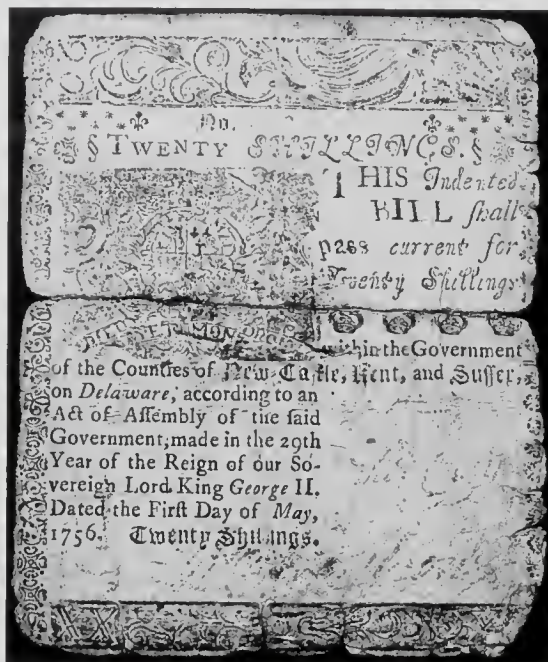 No.
§ TWENTY SHILLINGS. §
THIS Indented
BILL shall
pass current for
Twenty Shillings
within the Government
of the Counties of New-Castle, Kent, and Sussex,
on Delaware, according to an
Act of Assembly of the said
Government, made in the 29th
Year of the Reign of our So-
vereign Lord King George II.
Dated the First Day of May,
1756. Twenty Shillings.
XX